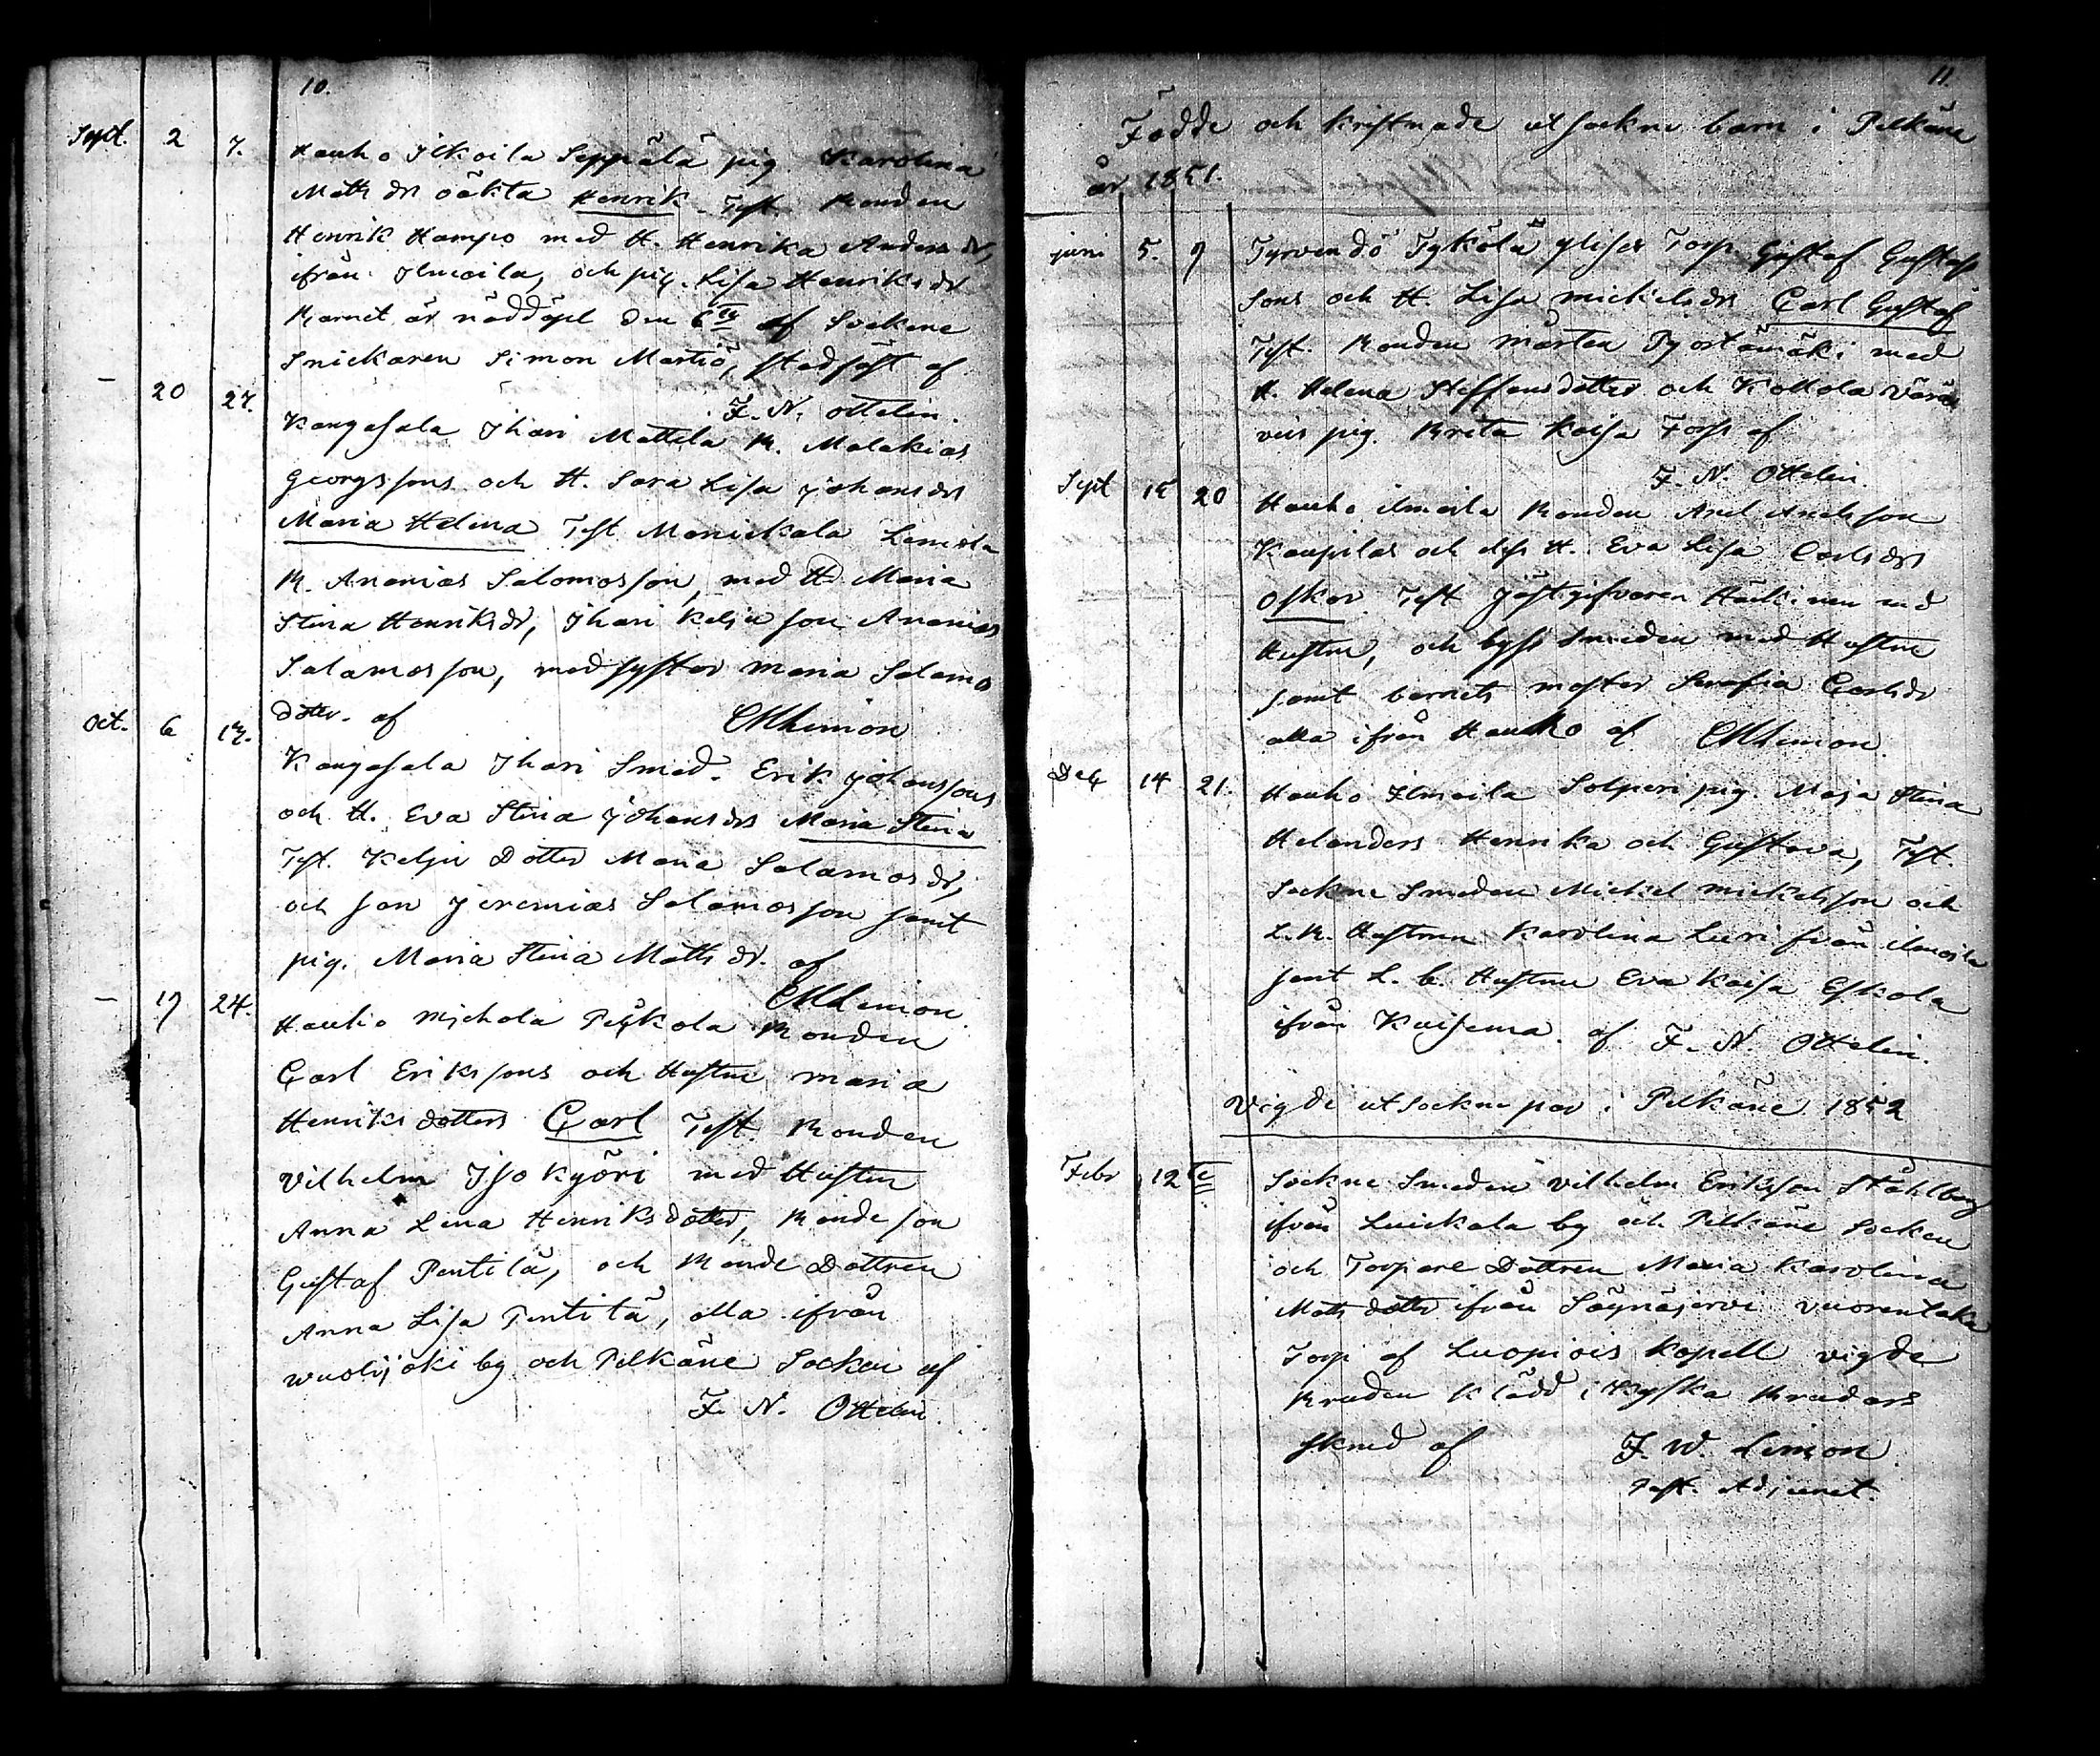 10.
Sept. 2 7. Hauho Ilkoila Seppälä pig. Karolina
Matts dr oäkta Henrik Test. Bonden
Henrik Hampo med H. Henrika Anders dr,
ifrån Ilmoila, och pig. Lisa Henriks dr
Barnet är nöddöpt den 6te af Sockne
Snickaren Simon Martiö, stadfäst af
F. N. Ottelin.
— 20 27. Kangasala Ihari Mattila B. Malakias
Georgssons och H. Sara Lisa Johans drs
Maria Helena Test Manickala
B. Ananias Salomosson, med H. Maria
Stina Henriks dr, Ihari Kelju son Ananias
Salamosson, med syster Maria Salamos
dotter. af CMLimon
Oct. 6 12. Kangasala Ihari Smed. Erik Johanssons
och H. Eva Stina Johans drs Maria Stina
Test. Kelju Dotter Maria Salamos dr,
och son Jeremias Salamosson samt
pig. Maria Stina Matts dr. af
CMLimon
— 19 24. Hauho Michola Bonden
Carl Erikssons och Hustru Maria
Henriks dotters Carl Test. Bonden
Vilhelm Iso Kyöri med Hustru
Anna Lena Henriksdotter, Bonde son
Gustaf Pentilä, och Bonde Dottren
Anna Lisa Pentilä, alla ifrån
Wuolijoki by och Pelkäne Socken af
F. N. Ottelin.
11.
Födde och kristnade utsockne barn i Pelkäne
år 1851.
juni 5. 9 Tyrvendö Tykölä ylises Torp. Gustaf Gustafs
sons och H. Lisa Mickels drs Carl Gustaf
Test. Bonden Mårten Pyörtämäki med
H. Helena Steffansdotter och Kollola
pig. Brita Kaisa Forss af
F. N. Ottelin.
Sept 15 20 Hauho Ilmoila Bonden Axel Andersson
Kaupilas och dess H. Eva Lisa Carls drs
Oskar Test Gästgifvaren med
Hustru, och byss Smeden med Hustru
samt barnets moster Serafia Carls dr
alla ifrån Hauho af CMLimon
Dec 14 21. Hauho Ilmoila Solperi pig. Maja Stina
Helanders Henrika och Gustava, Test.
Sockne Smeden Mickel Mickelsson och
L.B. Hustrun Karolina Leeri från Ilmoila
samt L. b. Hustru Eva Kaisa Eskola
ifrån Kuisema. af F. N. Ottelin.
Vigde utsockne par i Pelkäne 1852
Febr 12te Sockne Smeden Vilhelm Eriksson Ståhlberg
ifrån Luickala by och Pelkäne Socken
och Torpare Dottren Maria Karolina
Matts dotter ifrån Sägnäjervi Vuorentaka
Torp af Luopiois kapell vigde
Bruden klädd i Ryska Bruders
skrud af F. W. Limon
Past. Adjunct.